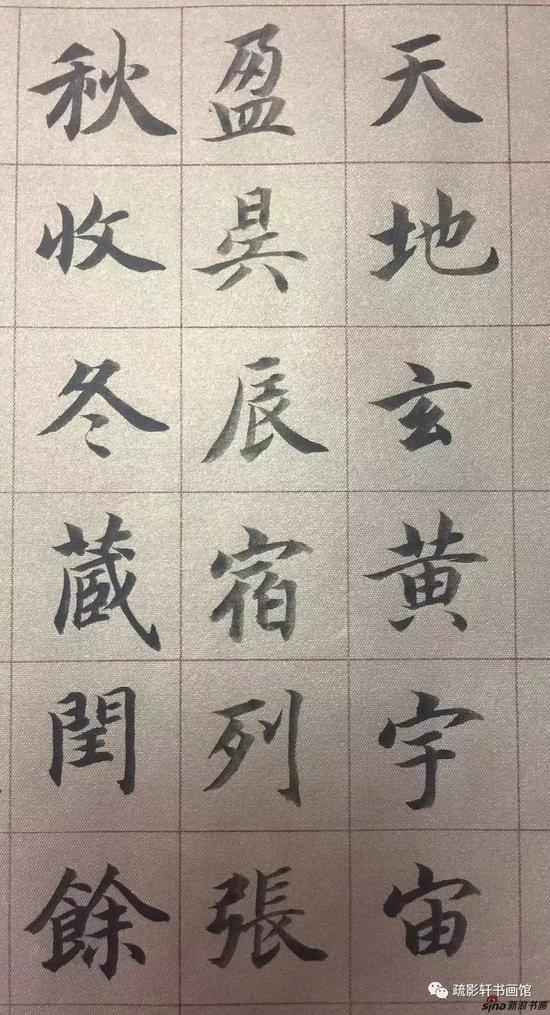 天地玄黄宇宙
盈昃辰宿列張
秋收冬蔵閏餘
疏影轩书画馆
sina 新浪书画